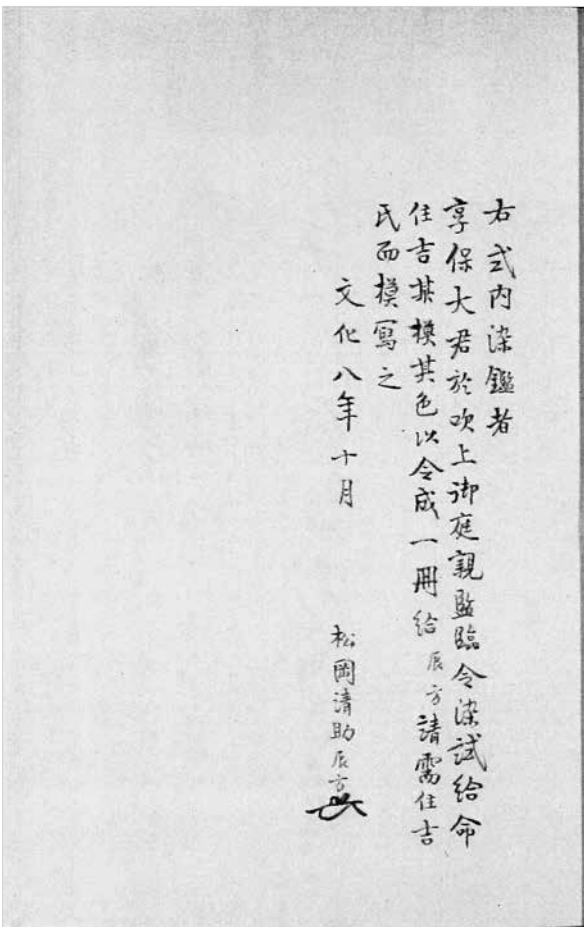 右式内染鑑者
享保大君於吹上御庭親監臨令染試給命
住吉某模其色以令成一冊給辰方請需住吉
氏而模寫之
文化八年十月
松岡清助辰方